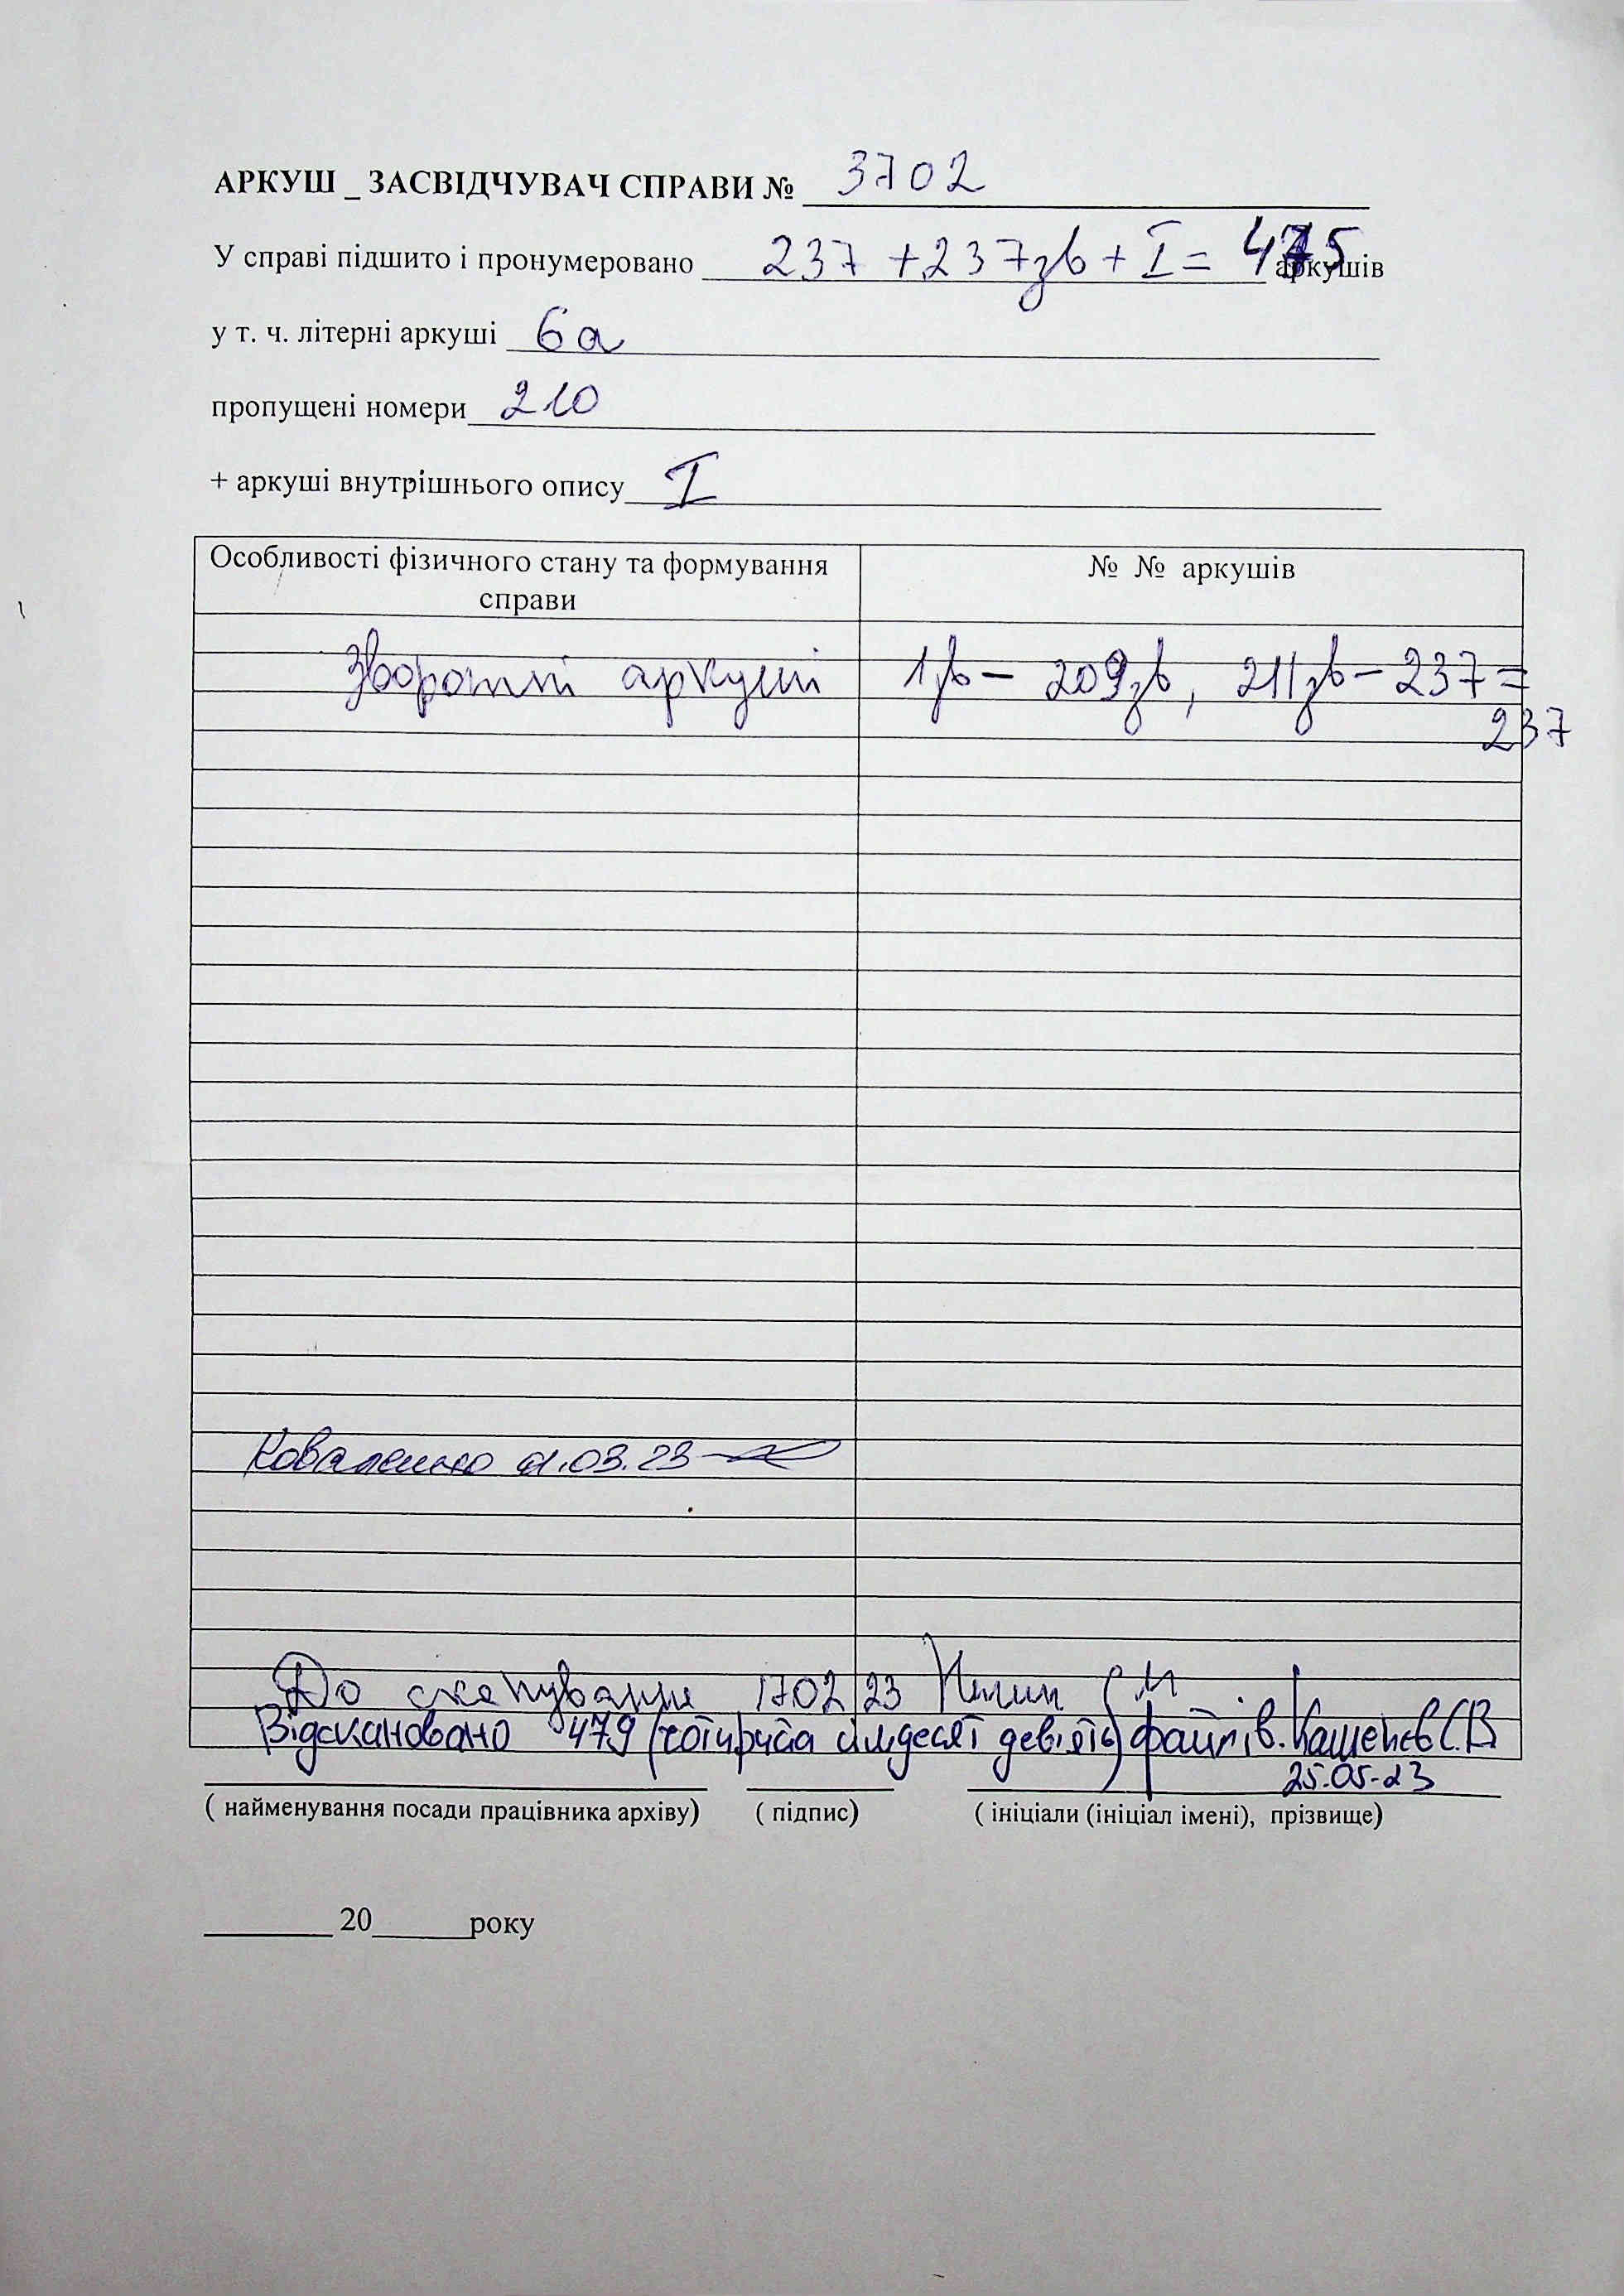 АРКУШ _ ЗАСВІДЧУВАЧ СПРАВИ № 3702
У справі підшито і пронумеровано 237 + 237зв + I = 475 аркушів
у т. ч. літерні аркуші 6а
пропущені номери 210
+ аркуші внутрішнього опису I
Особливості фізичного стану та формування справи
№ № аркушів
Зворотні аркуші 1зв – 209зв, 211зв – 237 =
237
Коваленко 01.03.23
До сканування 1702 23
Відскановано 479 (чотириста сімдесят девять) файлів. Кащеєв С.В
25.05.23
( найменування посади працівника архіву) ( підпис) ( ініціали (ініціал імені), прізвище)
20 року